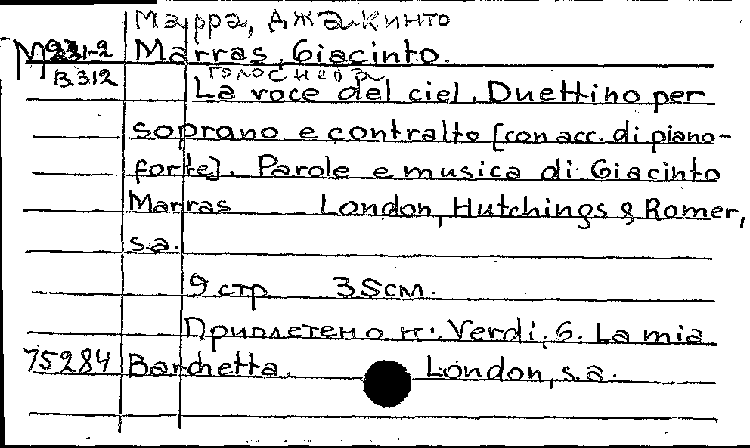 Марра, Джакинто
М 931-2 Marras, Giacinto.
В.312 Голос неба
La voce del ciel. Duettino per
soprano e contralto [con acc. di piano-
forte]. Parole e musica di Giacinto
Marras London, Hutchings & Romer,
s.a.
9 стр 35см.
Приплетено к: Verdi, G. La mia
75284 Barchetta. London, s.a.